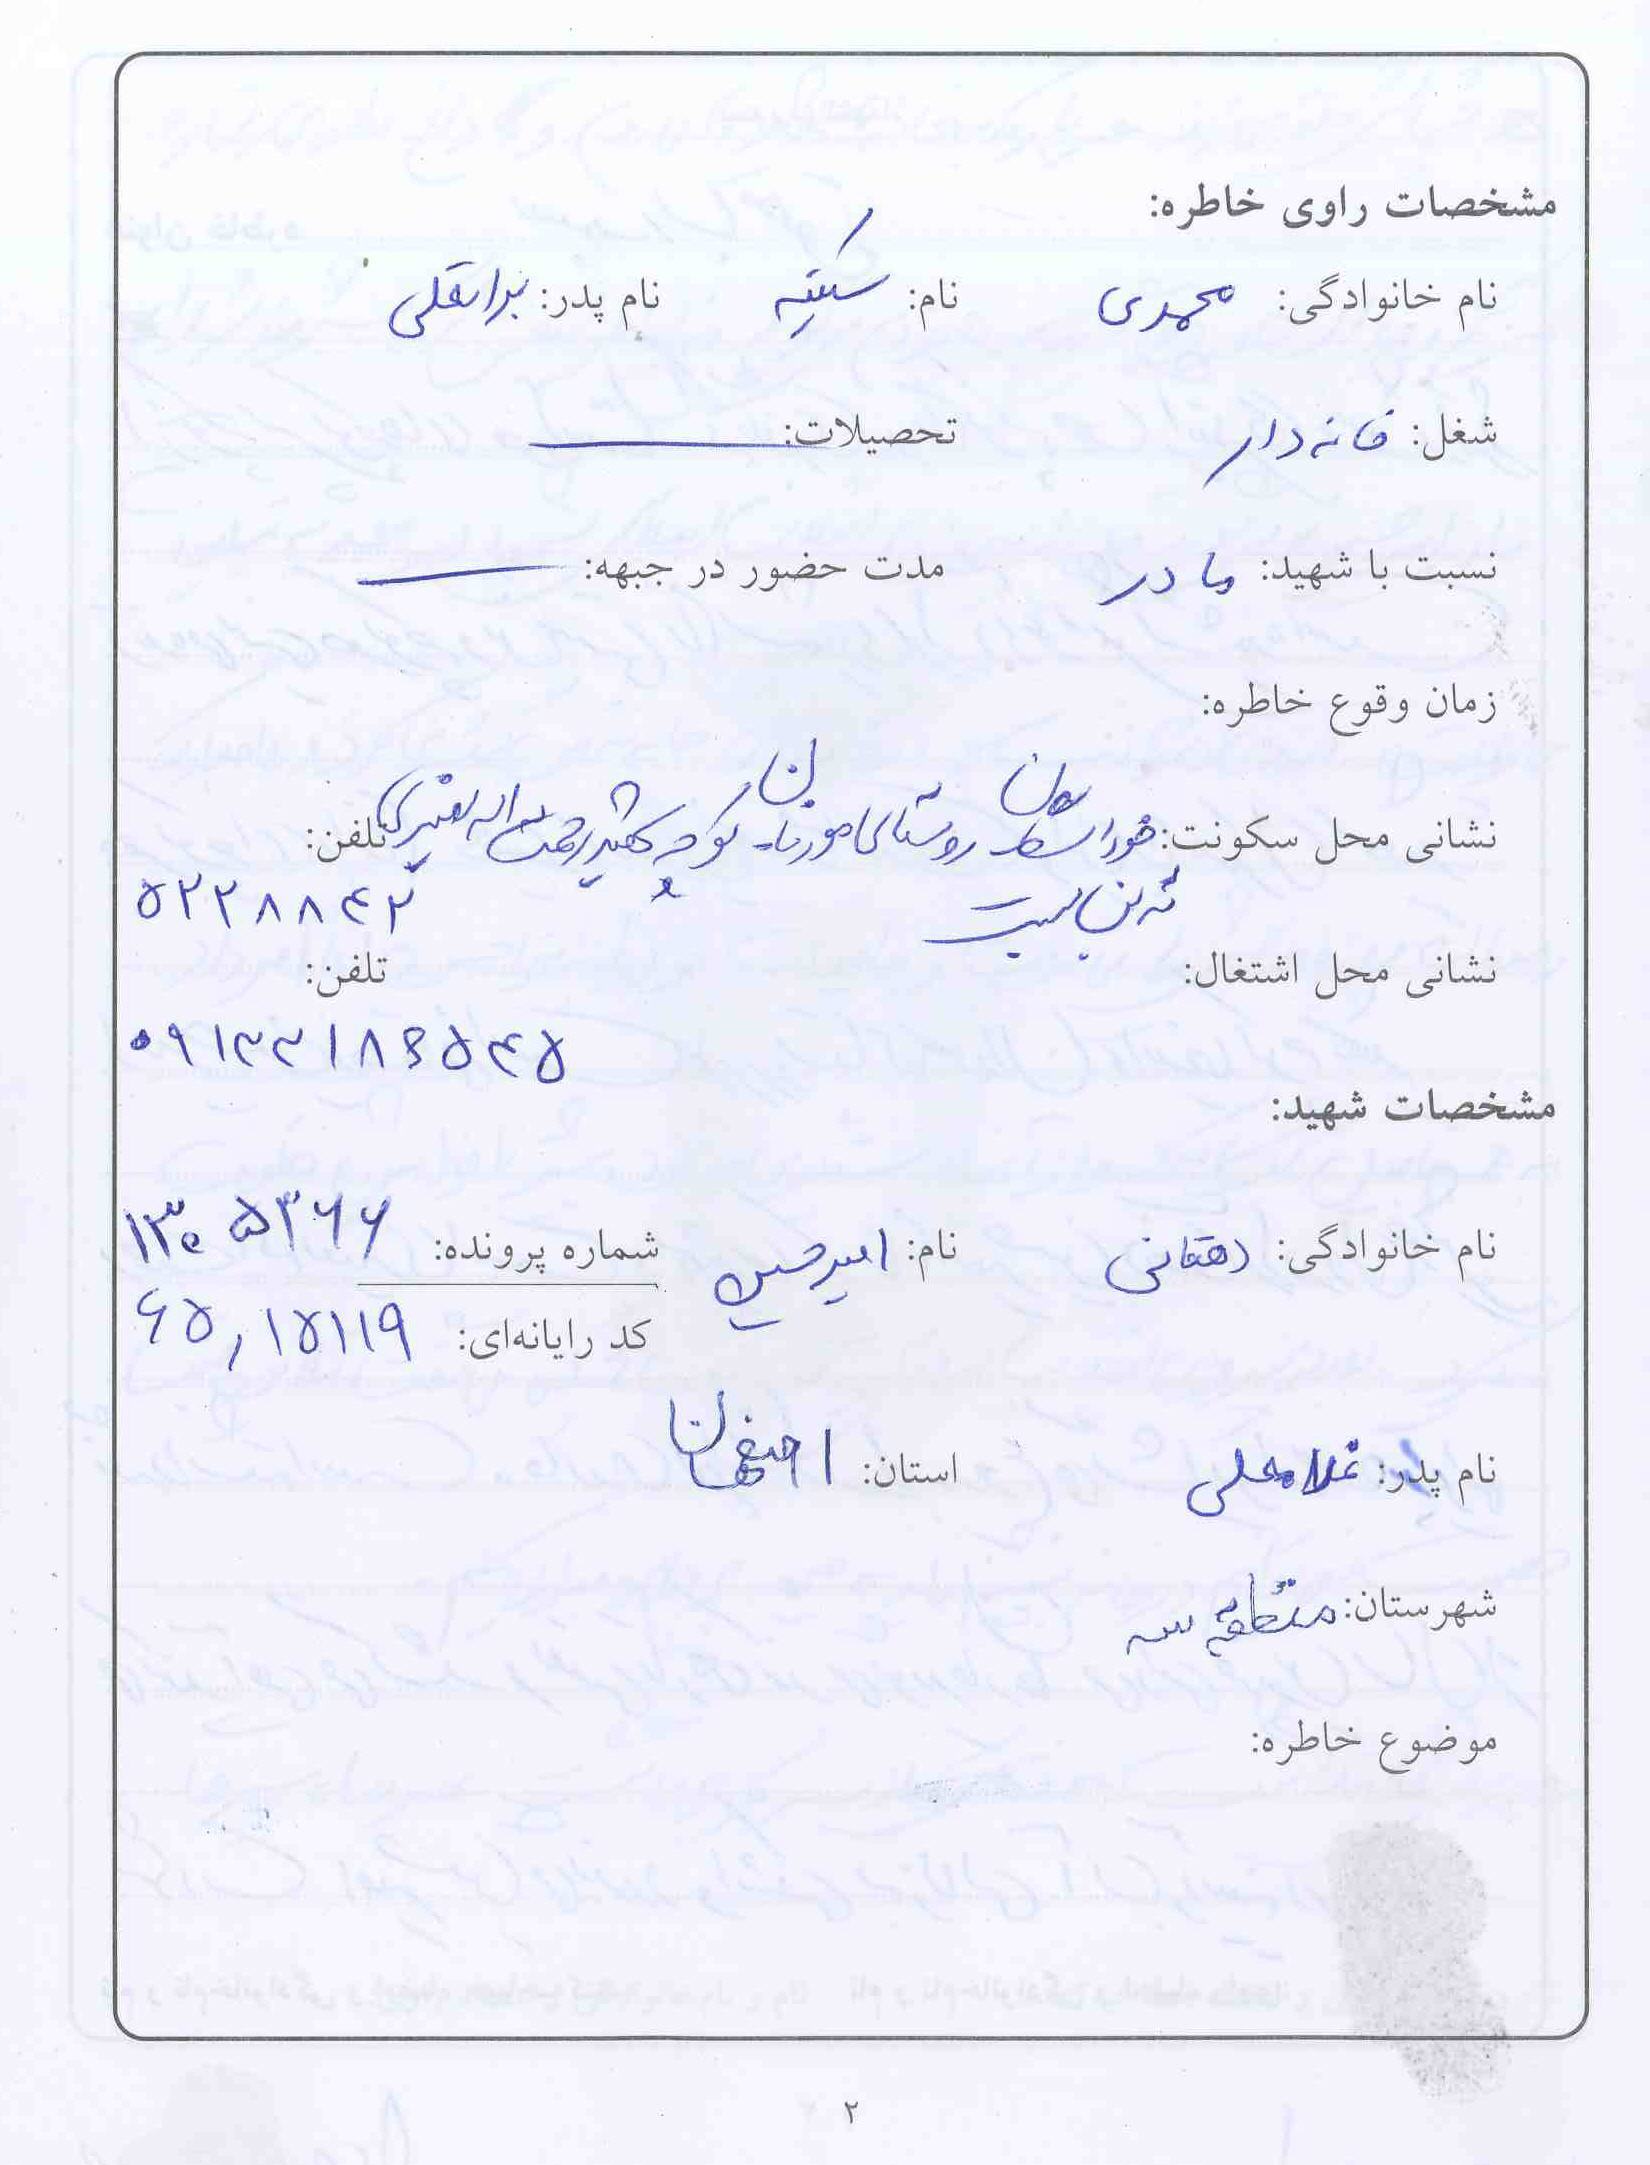 مشخصات راوی خاطره:
نام خانوادگی: محمدی نام: سکینه نام پدر: براتعلی
شغل: خانه دار تحصیلات: ـــــ
نسبت با شهید: مادر مدت حضور در جبهه: ـــــ
زمان وقوع خاطره:
نشانی محل سکونت: خوراسگان روستای کوچه شهید رحمت اله تلفن:
بن بست ۵۲۲۸۸۴۲
نشانی محل اشتغال: تلفن:
۰۹۱۳۲۱۸۶۵۴۵
مشخصات شهید:
نام خانوادگی: دهقانی نام: امیرحسین شماره پرونده: ۱۳۰۵۳۶۶
کد رایانه‌ای: ۶۵,۱۵۱۱۹
نام پدر: غلامعلی استان: اصفهان
شهرستان: منطقه سه
موضوع خاطره:
۲